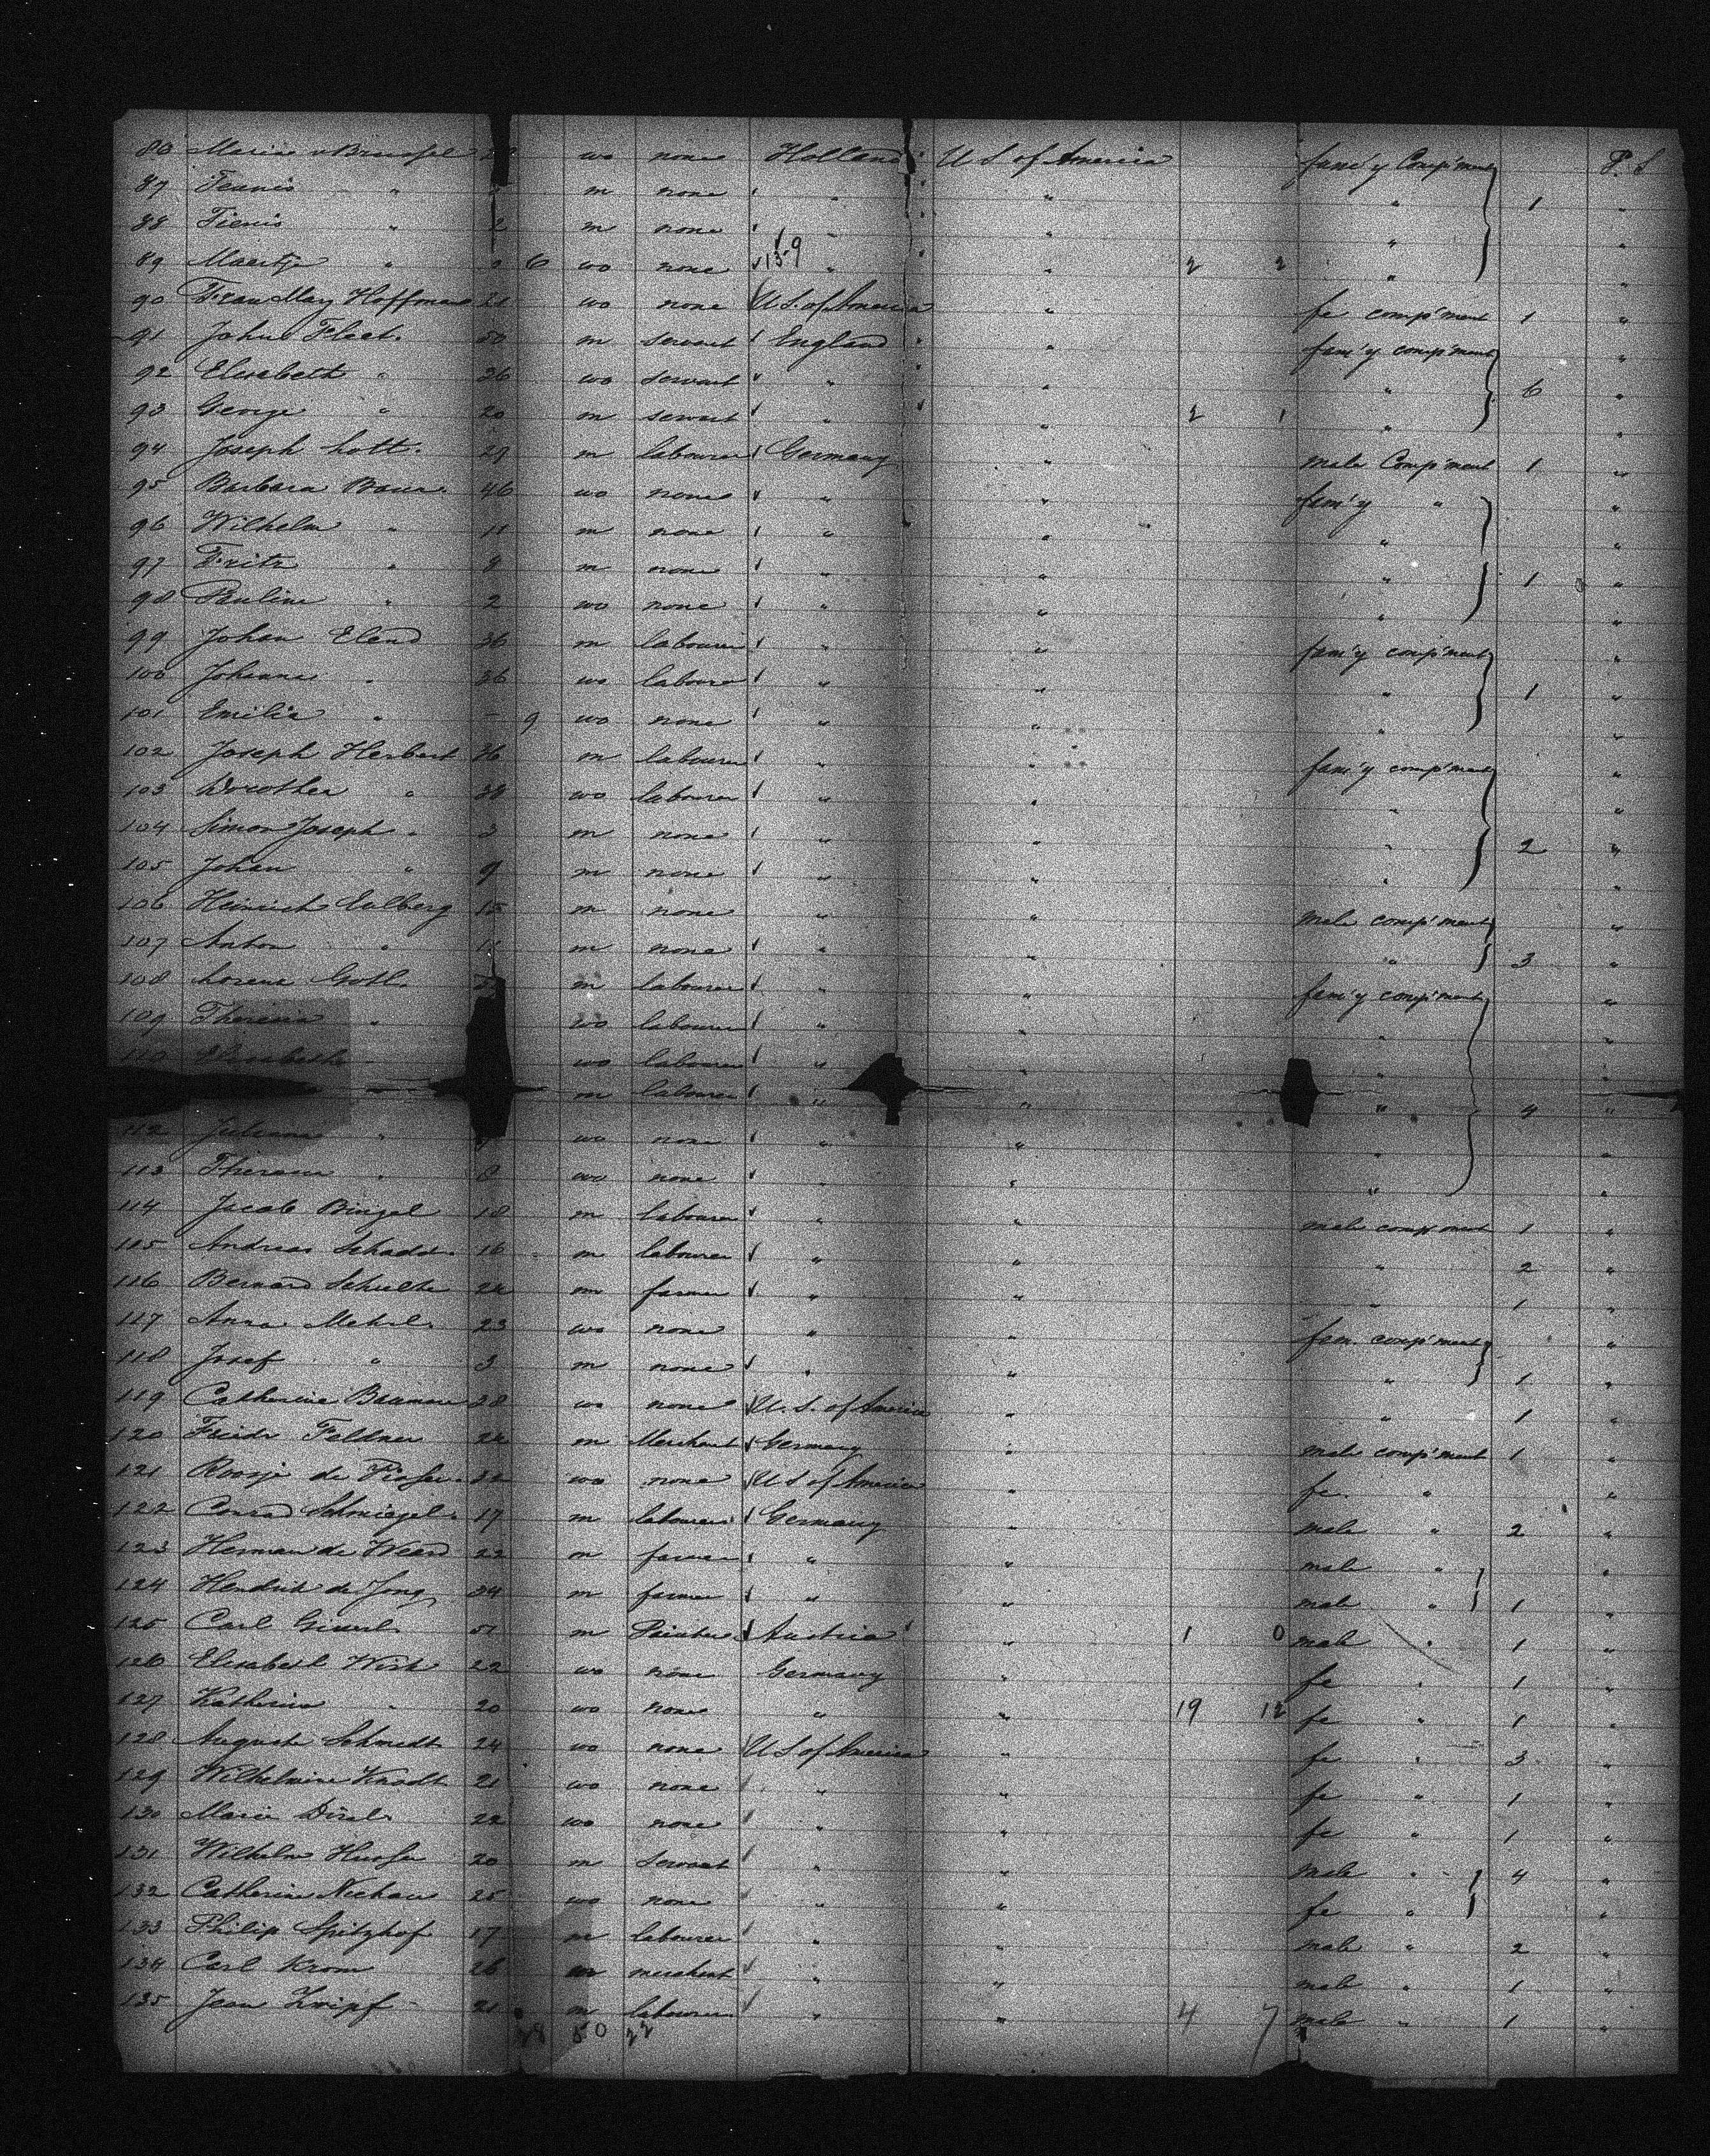 86 Maria v Brussel wo none Holland U S of America fam'y Comp'ment P. S
87 Teunis " m none " " " 1 "
88 " 2 m none " " " "
89 Maartje " 6 wo none 159 " " 2 2 " "
90 Frau May Hoffman 21 wo none U.S. of America " fe comp'ment 1 "
91 John Fleet. 50 m servant England " fam'y comp'ment "
92 Elisabeth " 36 wo servant " " " 6 "
93 George " 20 m servant " " 2 1 " "
94 Joseph Lott. 27 m labourer Germany " male Comp'ment 1 "
95 Barbara Baur. 46 wo none " " fam'y " "
96 Wilhelm " 11 m none " " " "
97 Fritz " 8 m none " " " 1 "
98 Pauline " 2 wo none " " " "
99 Johan Eland 36 m labourer " " fam'y comp'ment "
100 Johanne " 36 wo labourer " " " 1 "
101 Emilia " - 9 wo none " " " "
102 Joseph Herbert 36 m labourer " " fam'y comp'ment "
103 Dorothea " 38 wo labourer " " " "
104 Simon Joseph " 3 m none " " " 2 "
105 Johan " 9 m none " " " "
106 Heinrich Eulberg 15 m none " " male comp'ment "
107 Anton " 11 m none " " " 3 "
108 Lorenz Gotl. m labourer " " fam'y comp'ment "
109 Theresia " wo labourer " " " "
110 Elisabeth wo labourer " " " "
m labourer " " " 4 "
112 Juliana " wo none " " " "
113 Theresa " 8 wo none " " " "
114 Jacob Bingel 18 m labourer " " male comp'ment 1 "
115 Andreas Schadt. 16 m labourer " " " 2 "
116 Bernard Schulte 24 m farmer " " " 1 "
117 Anna Mehrl. 23 wo none " " fam. comp'ment "
118 Josef " 3 m none " " " 1 "
119 Catherine 28 wo none U. S. of America " " 1 "
120 Friedr Feldner 24 m Merchant Germany " male comp'ment 1 "
121 Roosje de 32 wo none U S of America " fe. " "
122 Conrad Schmiegel. 17 m labourer Germany " male " 2 "
123 Herman de Weerd 22 m farmer " " male " "
124 Hendrik de Jong 34 m farmer " " male " 1 "
125 Carl 51 m Painter Austria " 1 0 male " 1 "
126 Elisabeth Wirh 22 wo none Germany " fe " 1 "
127 Katherina " 20 wo none " " 19 12 fe " 1 "
128 Auguste Schmidt 24 wo none U S of America " fe " 3 "
129 Wilhelmine Knodt 21 wo none " " fe " 1 "
130 Marie 22 wo none " " fe " 1 "
131 Wilhelm 20 m servant " " male " 4 "
132 Catherine 25 wo none " " fe " "
133 Philip Spitzhof 17 m labourer " " male " 2 "
134 Carl Krom 26 m merchant " " male " 1 "
135 Jean Knipf 21 m labourer " " 4 7 male " 1 "
28 50 22